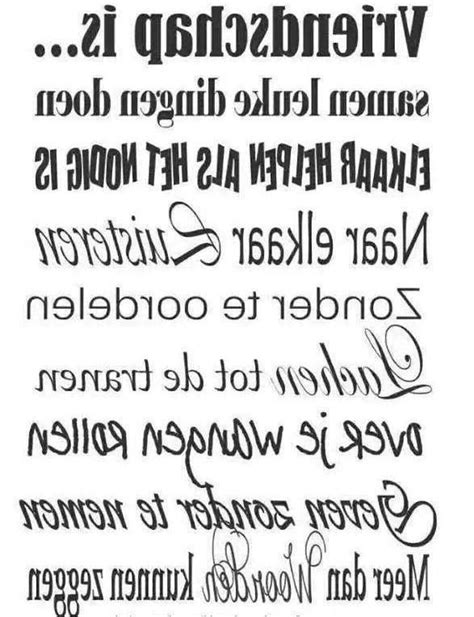 Vriendschap is...
samen leuke dingen doen
ELKAAR HELPEN ALS HET NODIG IS
Naar elkaar Luisteren
Zonder te oordelen
Lachen tot de tranen
over je wangen rollen
Geven zonder te nemen
Meer dan Woorden kunnen zeggen